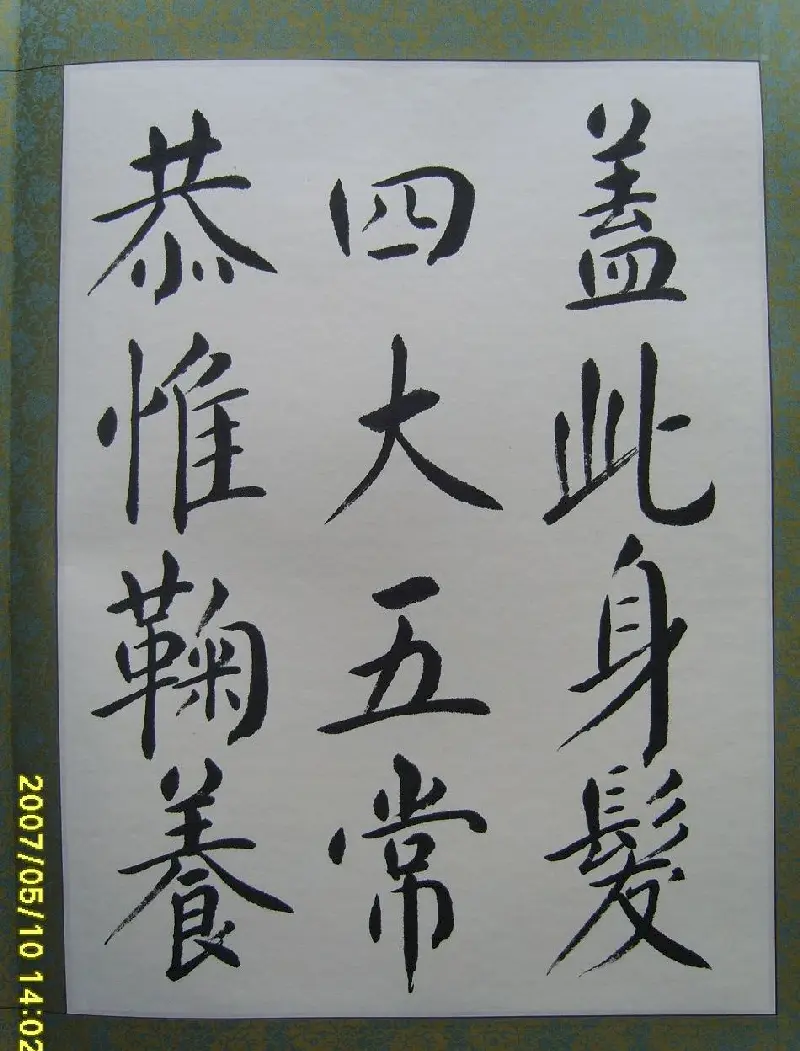 蓋此身髮
四大五常
恭惟鞠養
2007/05/10 14:02